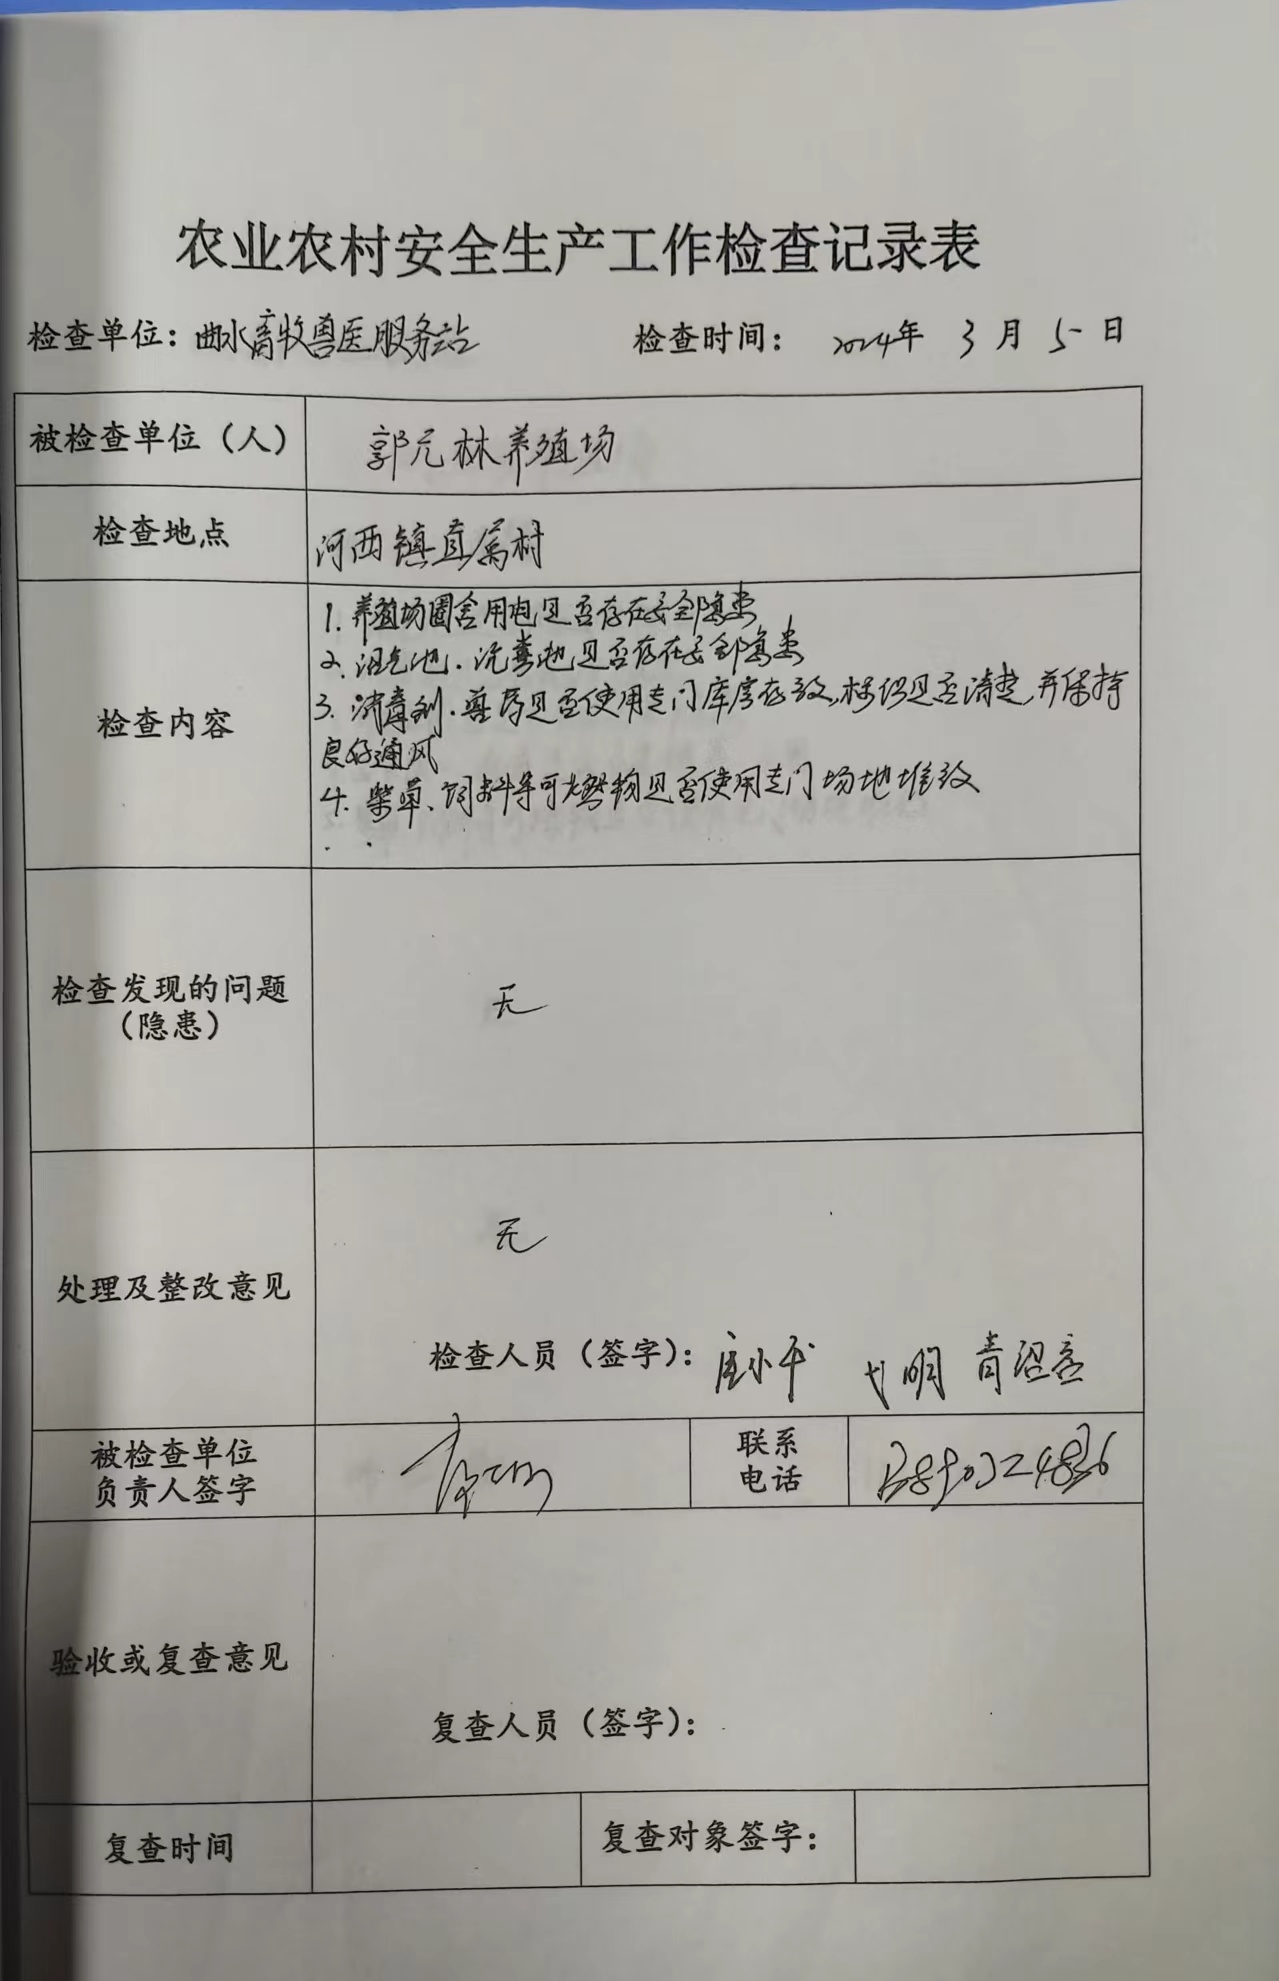 农业农村安全生产工作检查记录表
检查单位：曲水畜牧兽医服务站 检查时间： 2024年 3 月 5 日
被检查单位（人） 郭元林养殖场
检查地点 河西镇直属村
1. 养殖场圈舍用电是否存在安全隐患
2. 沼气池、沉粪池是否存在安全隐患
检查内容 3. 消毒剂、兽药是否使用专门库房存放，标识是否清楚，并保持
良好通风
4. 柴草、饲料等可燃物是否使用专门场地堆放
检查发现的问题
（隐患）
无
无
处理及整改意见
检查人员（签字）：
被检查单位
负责人签字
联系
电话
验收或复查意见
复查人员（签字）：
复查时间 复查对象签字：